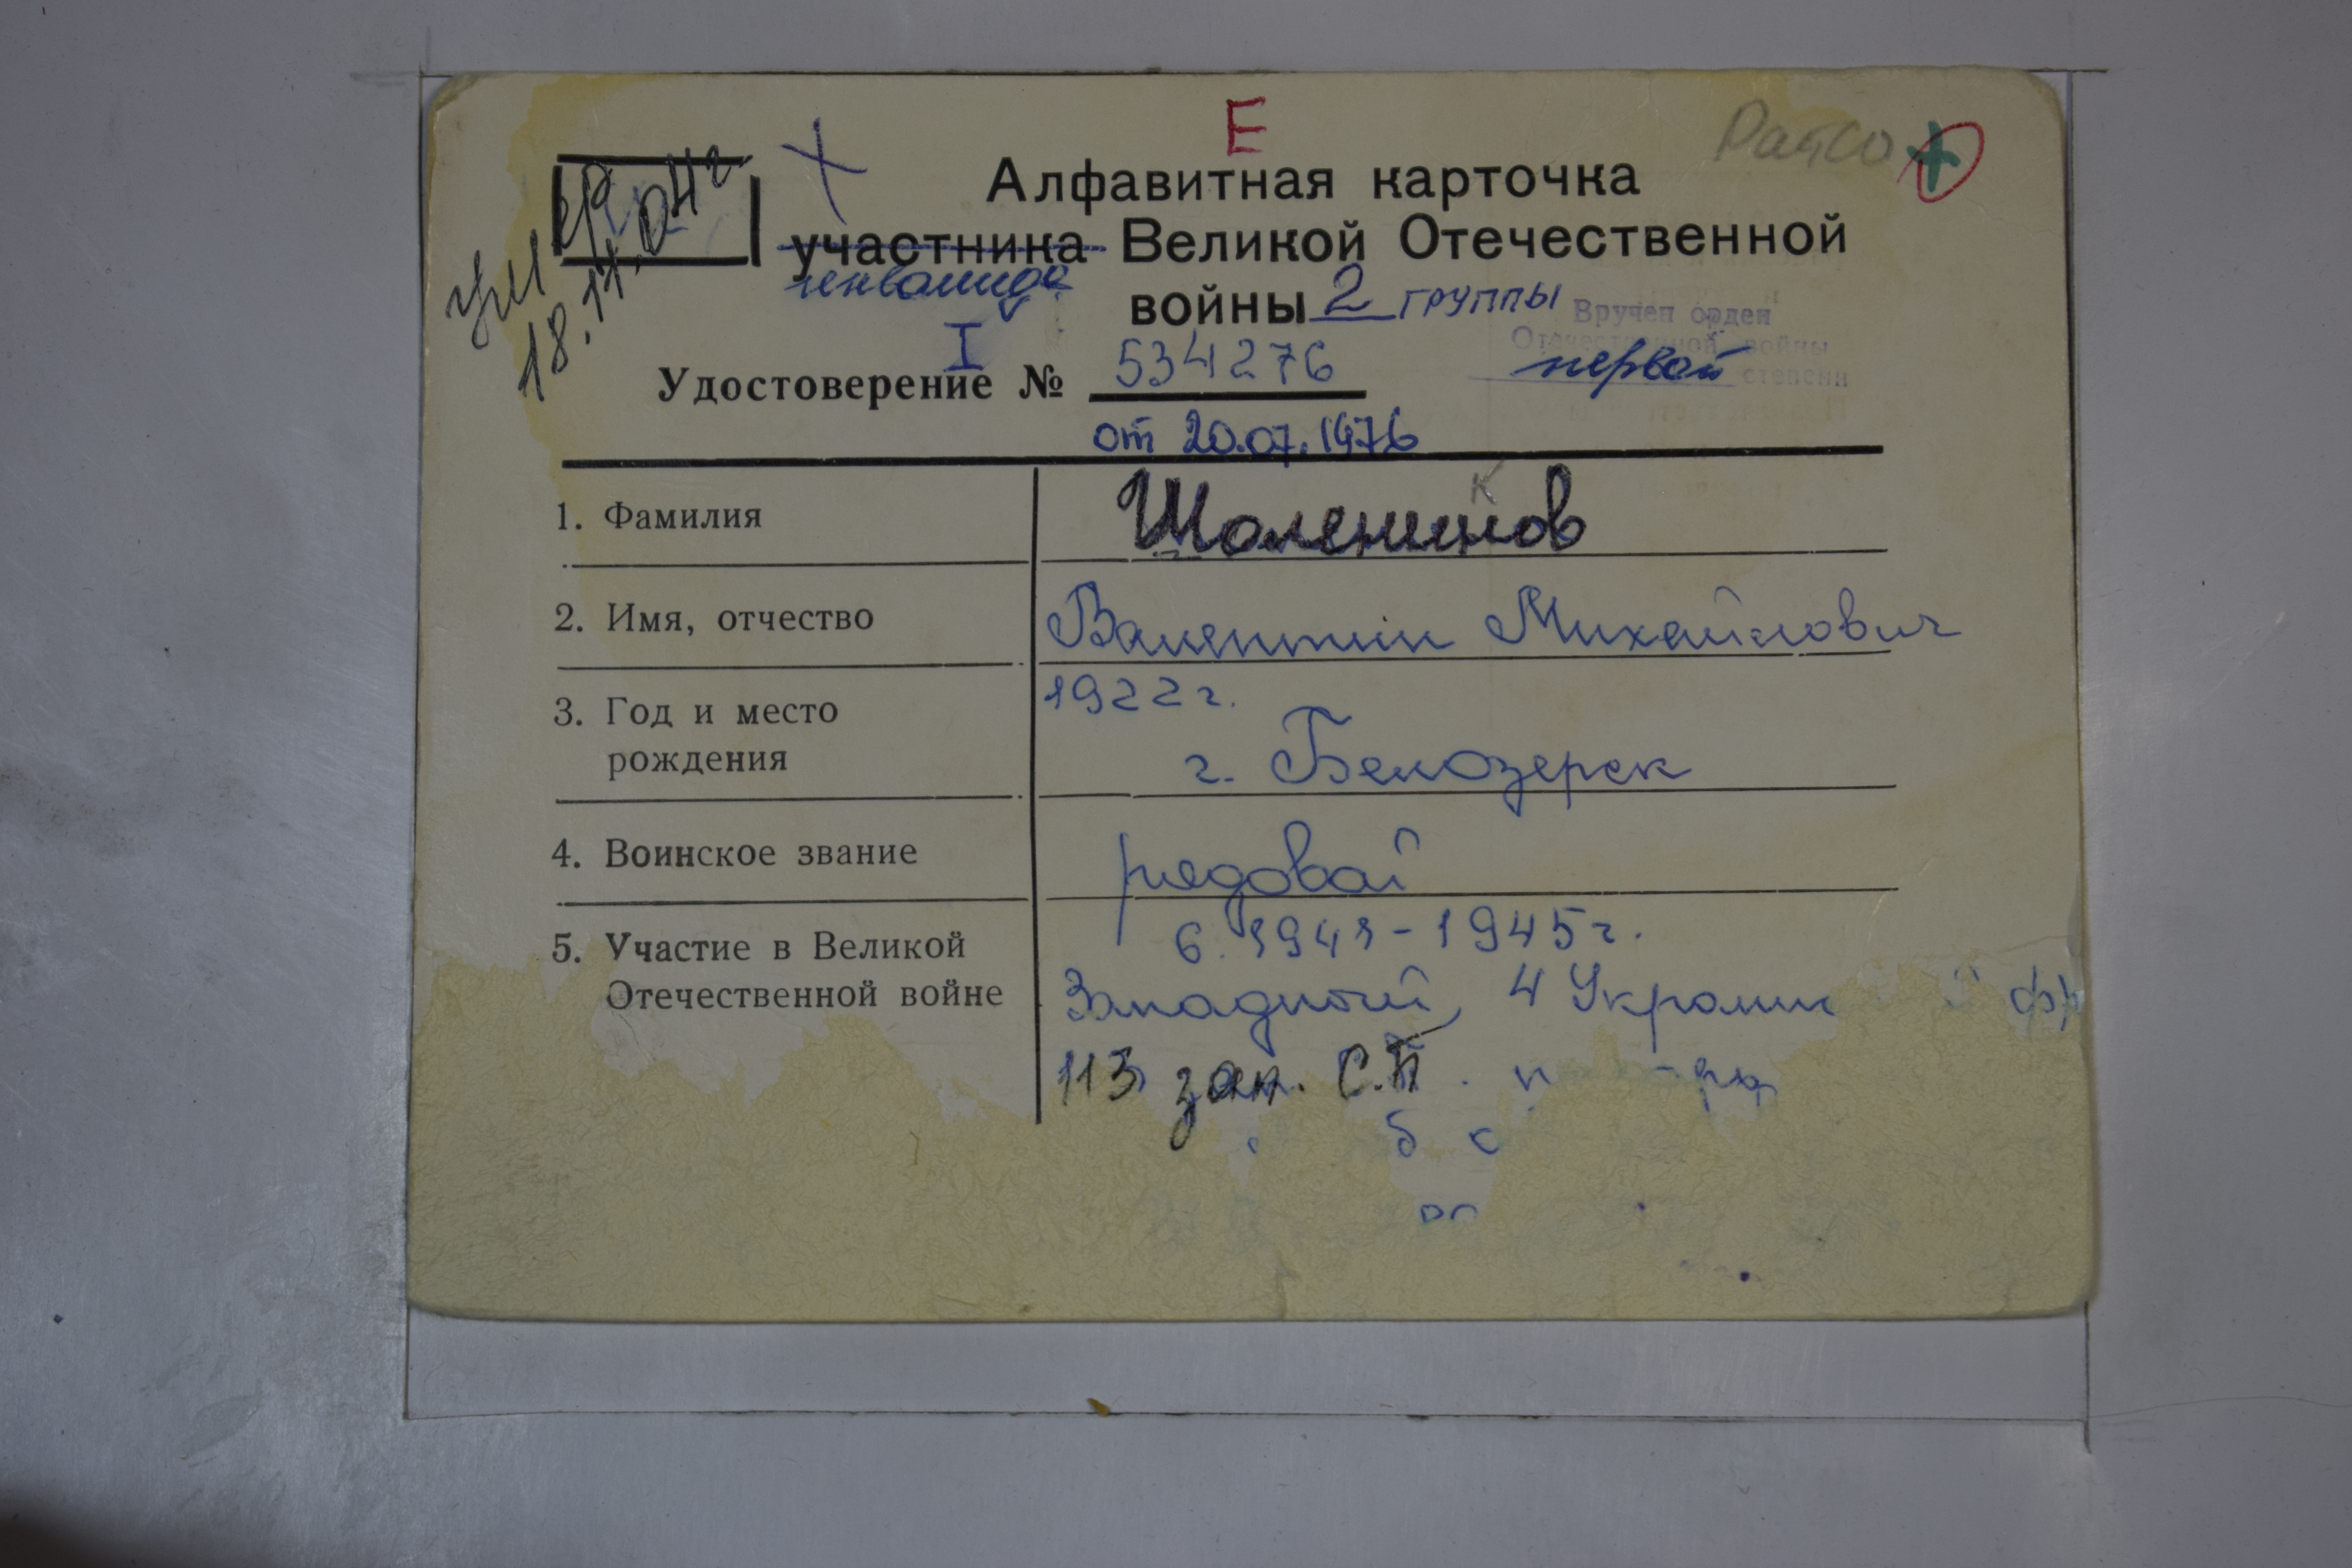 Е
РайСО +
Алфавитная карточка
участника Великой Отечественной
инвалида
войны 2 группы
ум
18.11.04г
Вручен орден
Отечественной войны
первой степени
I
Удостоверение № 534276
от 20.07.1976
1. Фамилия Шоленинов
к
2. Имя, отчество Валентин Михайлович
3. Год и место рождения 1922г.
г. Белозерск
4. Воинское звание рядовой
5. Участие в Великой Отечественной войне 6.1941-1945г.
Западный, 4 Украин й фр
113 зап. С.П.